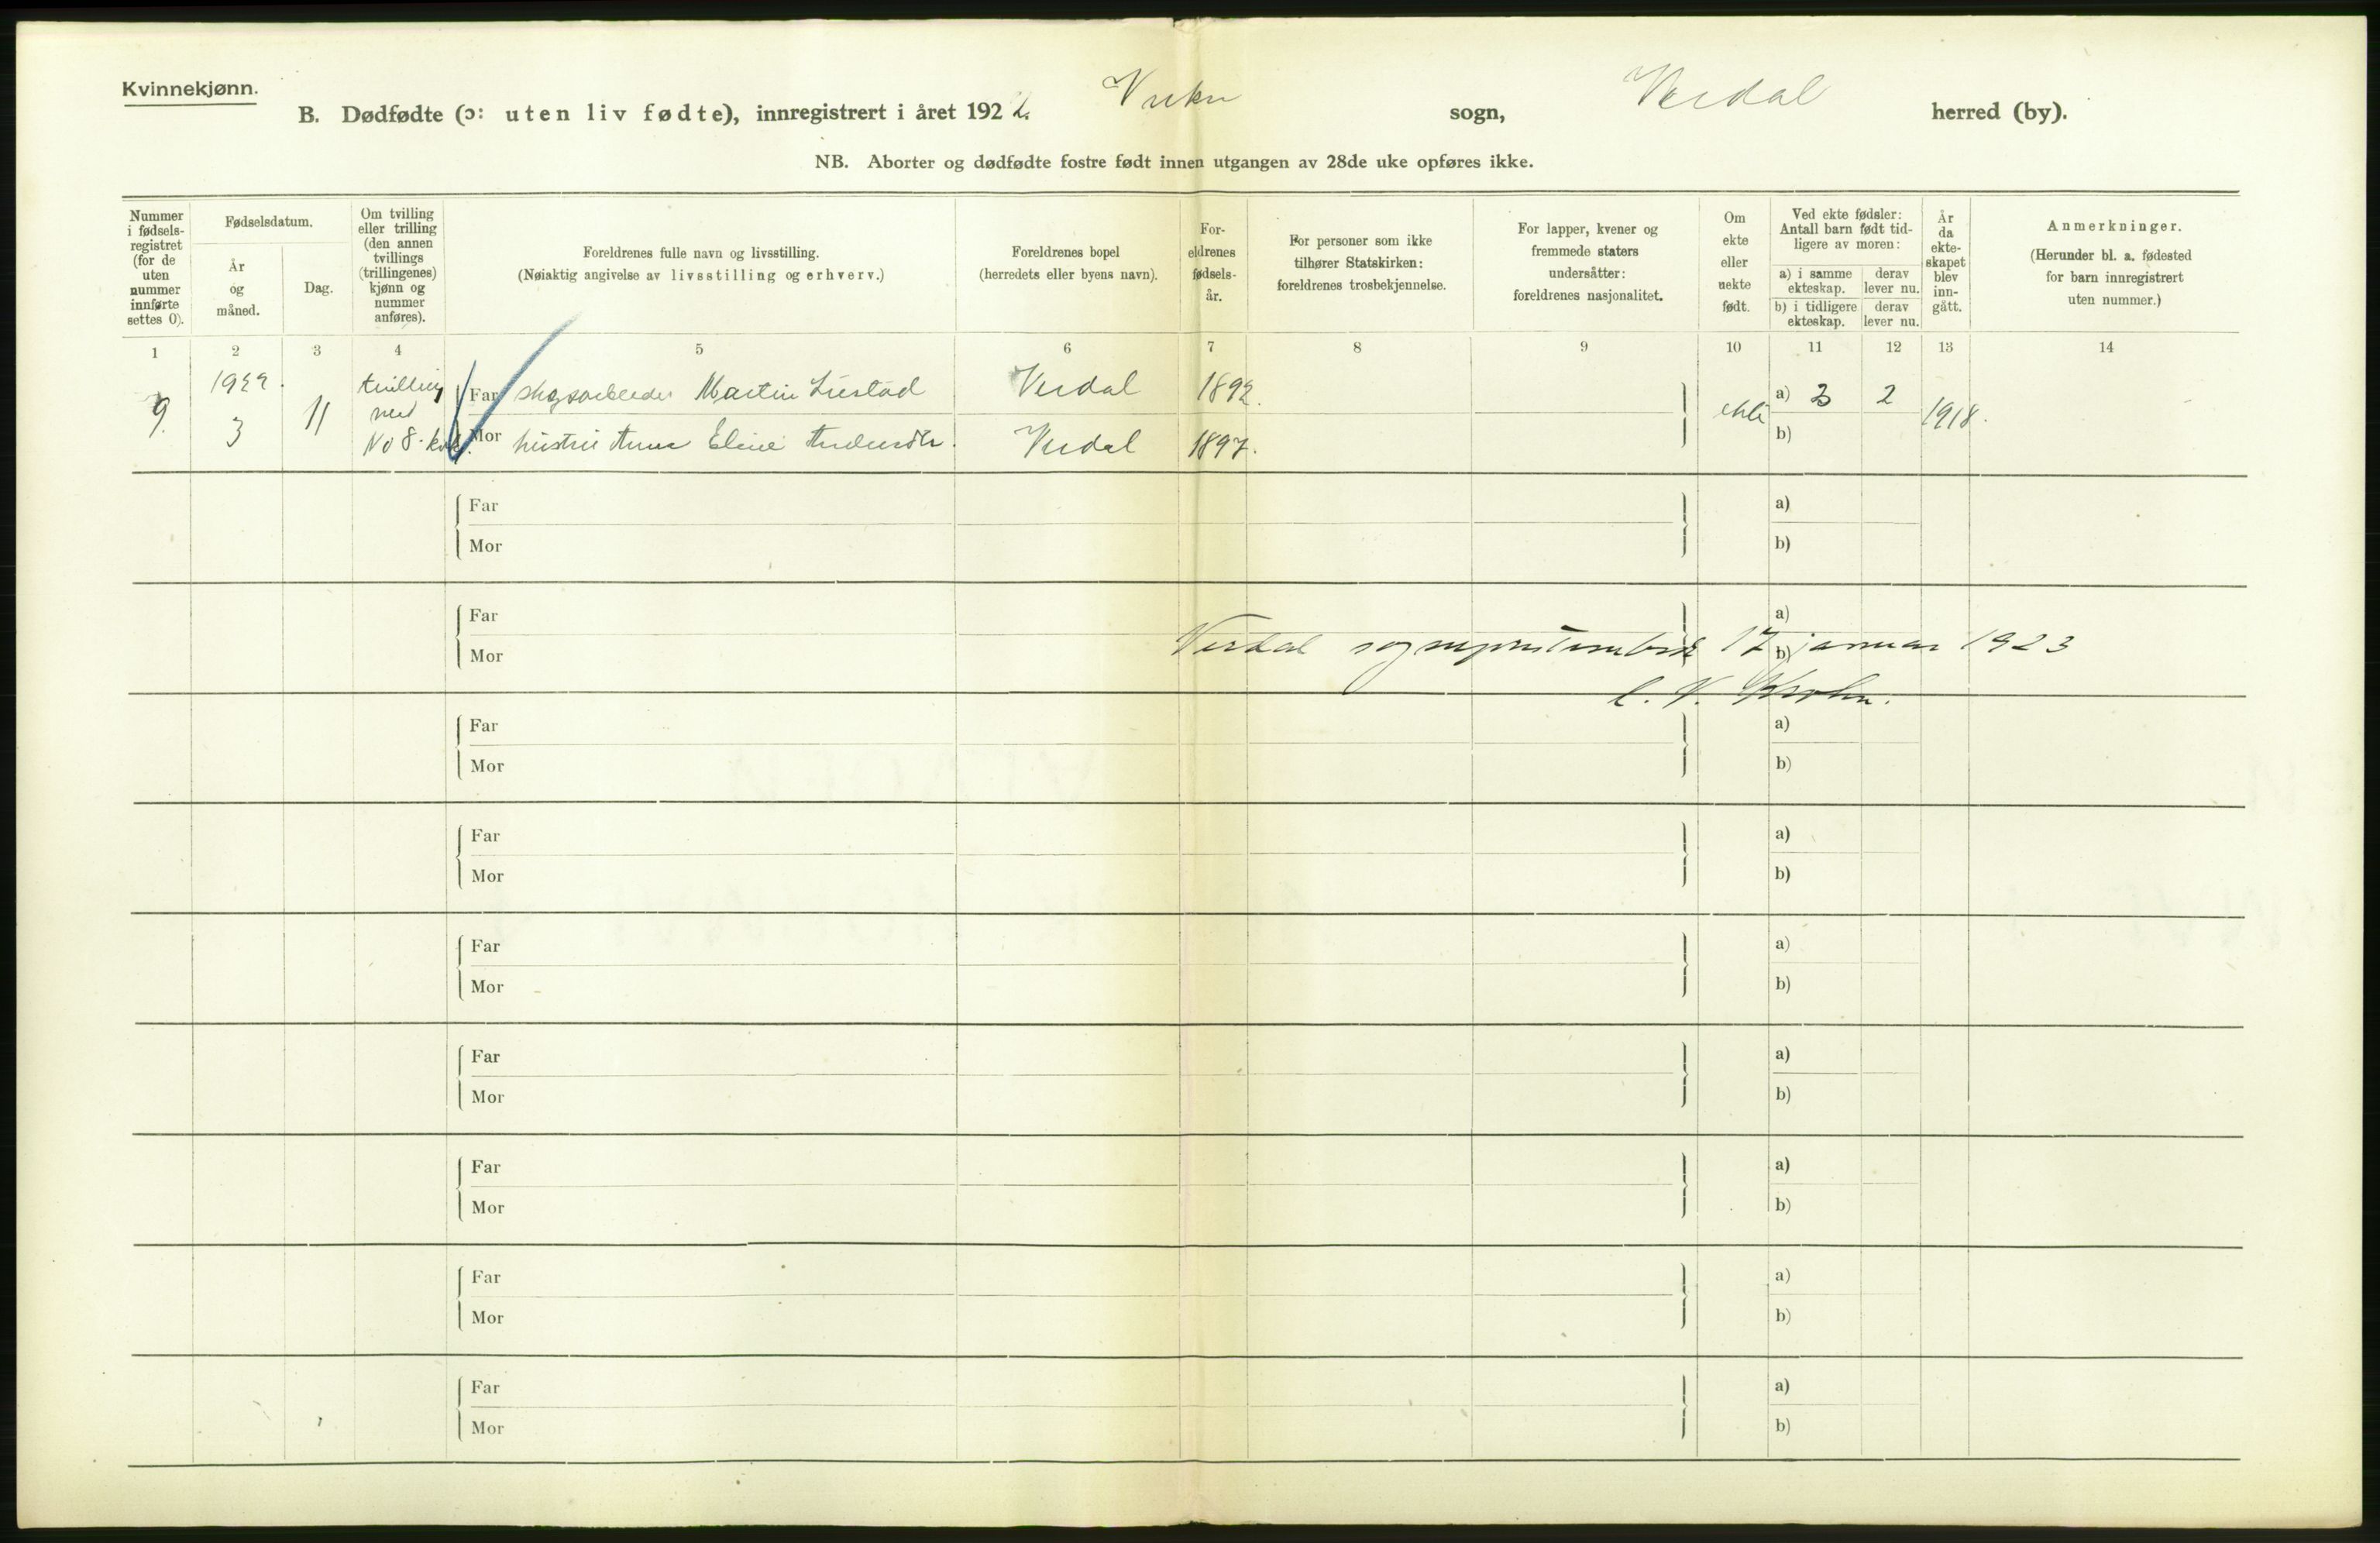 Kvinnekjønn.
B. Dødfødte (ɔ: uten liv fødte), innregistrert i året 1922. Vuku sogn, Verdal herred (by).
NB. Aborter og dødfødte fostre født innen utgangen av 28de uke opføres ikke.
Nummer i fødsels-registret (for de uten nummer innførte settes 0).
Fødselsdatum.
År og måned.
Dag.
Om tvilling eller trilling (den annen tvillings (trillingenes) kjønn og nummer anføres).
Foreldrenes fulle navn og livsstilling.
(Nøiaktig angivelse av livsstilling og erhverv.)
Foreldrenes bopel
(herredets eller byens navn).
For-eldrenes fødsels-år.
For personer som ikke tilhører Statskirken: foreldrenes trosbekjennelse.
For lapper, kvener og fremmede staters undersåtter: foreldrenes nasjonalitet.
Om ekte eller uekte født.
Ved ekte fødsler: Antall barn født tid-ligere av moren:
a) i samme ekteskap.
derav lever nu.
b) i tidligere ekteskap.
derav lever nu.
År da ekte-skapet blev inn-gått.
Anmerkninger.
(Herunder bl. a. fødested for barn innregistrert uten nummer.)
1 2 3 4 5 6 7 8 9 10 11 12 13 14
9. 1922. 3 11 tvilling med No 8. kv.
Far skogsarbeider Martin Verdal 1892.
Mor hustru Anna Eline Andersdtr. Verdal 1897.
ekte a) 3 2 1918.
b)
Far a)
Mor b)
Far a)
Mor b)
Verdal sogneprestembede 17 januar 1923
Far a)
Mor b)
Far a)
Mor b)
Far a)
Mor b)
Far a)
Mor b)
Far a)
Mor b)
Far a)
Mor b)
Far a)
Mor b)